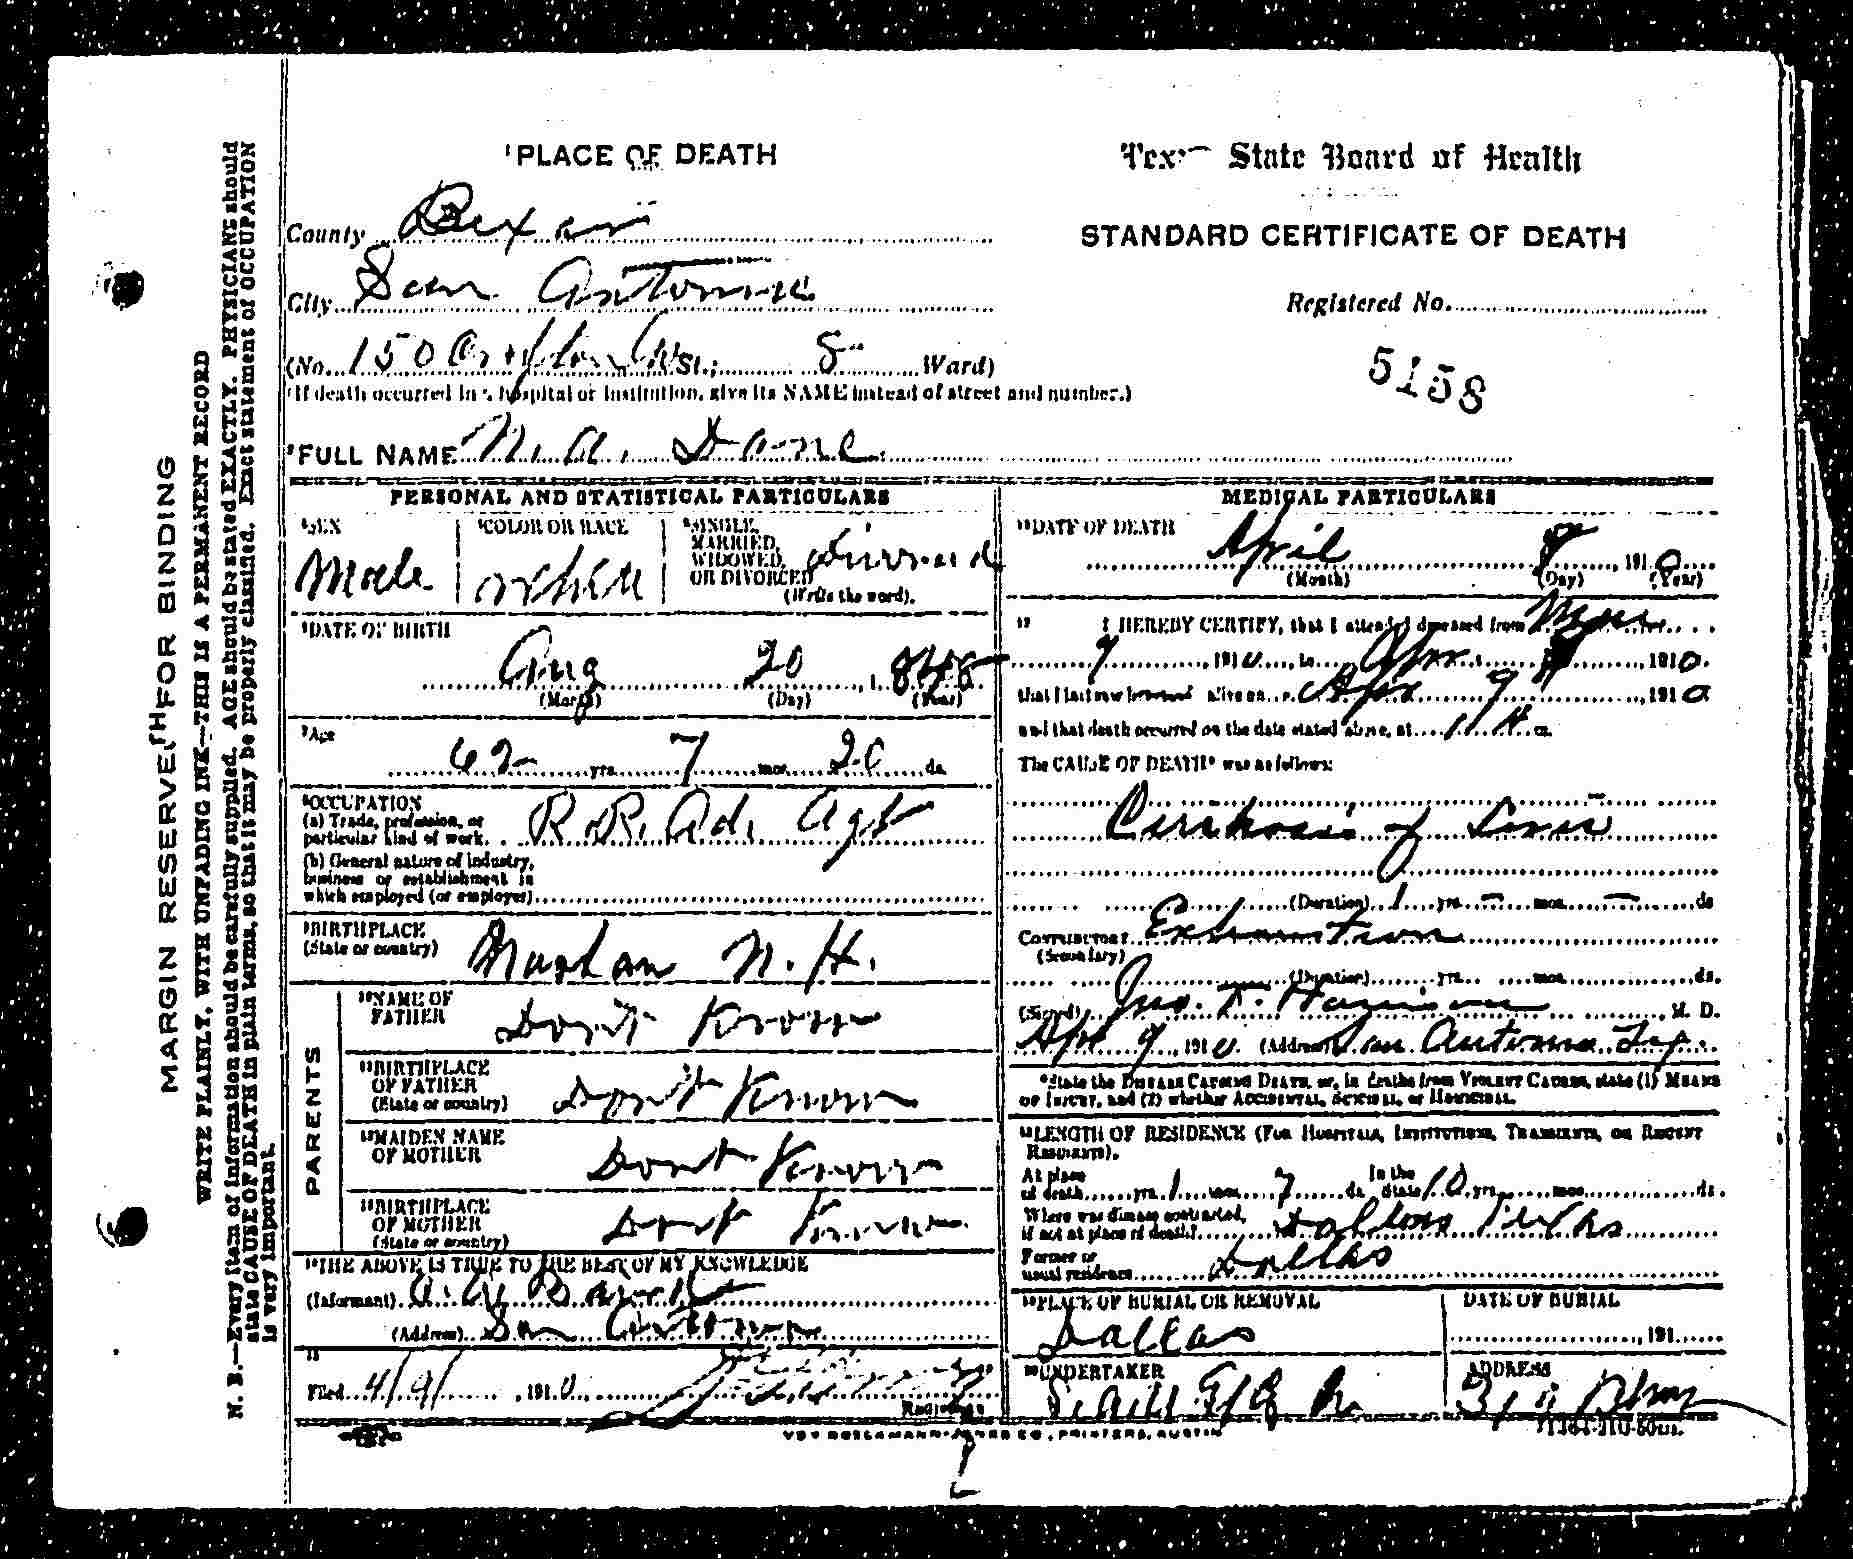 MARGIN RESERVED FOR BINDING
WRITE PLAINLY, WITH UNFADING INK—THIS IS A PERMANENT RECORD
N. B.—Every item of information should be carefully supplied. AGE should be stated EXACTLY. PHYSICIANS should
state CAUSE OF DEATH in plain terms, so that it may be properly classified. Exact statement of OCCUPATION
is very important.
1 PLACE OF DEATH
County Bexar
City San Antonio
(No. 150 St.; 8 Ward)
(If death occurred in a hospital or institution, give its NAME instead of street and number.)
Texas State Board of Health
STANDARD CERTIFICATE OF DEATH
Registered No.
5158
2 FULL NAME N. A. Dane
PERSONAL AND STATISTICAL PARTICULARS
3 SEX
Male
4 COLOR OR RACE
White
5 SINGLE,
MARRIED,
WIDOWED,
OR DIVORCED
(Write the word).
6 DATE OF BIRTH
Aug 20, 1848
(Month) (Day) (Year)
7 Age
62 yrs. 7 mos. 20 ds.
8 OCCUPATION
(a) Trade, profession, or
particular kind of work. R. R. Ad. Agt
(b) General nature of industry,
business or establishment in
which employed (or employer)
9 BIRTHPLACE
(State or country) N. H.
PARENTS
10 NAME OF
FATHER Dont Know
11 BIRTHPLACE
OF FATHER
(State or country) Dont Know
12 MAIDEN NAME
OF MOTHER Dont Know
13 BIRTHPLACE
OF MOTHER
(State or country) Dont Know
14 THE ABOVE IS TRUE TO THE BEST OF MY KNOWLEDGE
(Informant)
(Address) San Antonio
15
Filed 4/9/, 1910
Registrar
MEDICAL PARTICULARS
16 DATE OF DEATH
April 8, 1910
(Month) (Day) (Year)
17 I HEREBY CERTIFY, that I attended deceased from Mar
9, 1910, to Apr 8, 1910.
that I last saw alive on Apr 9, 1910
and that death occurred on the date stated above, at 1 A m.
The CAUSE OF DEATH* was as follows:
Cirrhosis of Liver
(Duration) 1 yrs. – mos. – ds
Contributory Exhaustion
(Secondary)
(Duration) yrs. mos. ds.
(Signed) Jno. T. Harrison, M. D.
Apr 9, 1910. (Address) San Antonio Tex
*State the Disease Causing Death, or, in deaths from Violent Causes, state (1) Means
of Injury, and (2) whether Accidental, Suicidal, or Homicidal.
18 LENGTH OF RESIDENCE (For Hospitals, Institutions, Transients, or Recent
Residents).
At place
of death yrs. 1 mos. 7 ds.
In the
State 10 yrs. mos. ds.
Where was disease contracted,
if not at place of death? Dallas Texas
Former or
usual residence Dallas
19 PLACE OF BURIAL OR REMOVAL
Dallas
DATE OF BURIAL
, 191
20 UNDERTAKER
ADDRESS
VON BOECKMANN-JONES CO., PRINTERS, AUSTIN